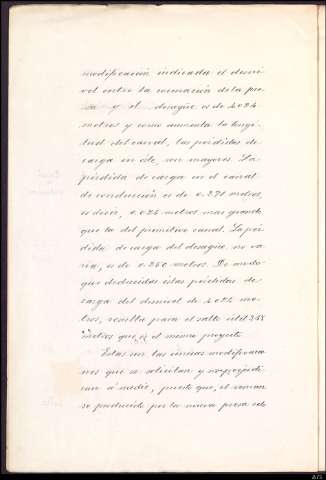 modificación indicada el desni-
vel entre la coronación de la pre-
sa y el desagüe es de 4.024
metros y como aumenta la longi-
tud del canal, las pérdidas de
carga en este, son mayores. La
pérdida de carga en el canal
de conducción es de 0.271 metros,
es decir, 0.026 metros mas grande
que la del primitivo canal. La pér-
dida de carga del desagüe no va-
ria, es de 0.260 metros. De modo
que deducidas estas pérdidas de
carga del desnivel de 4.024 me-
tros, resulta para el salto útil
metros que es el mismo proyecto
Estas son las únicas modificacio-
nes que se solicitan y no perjudi-
can á nadie, puesto que, el reman-
so producido por la nueva presa solo